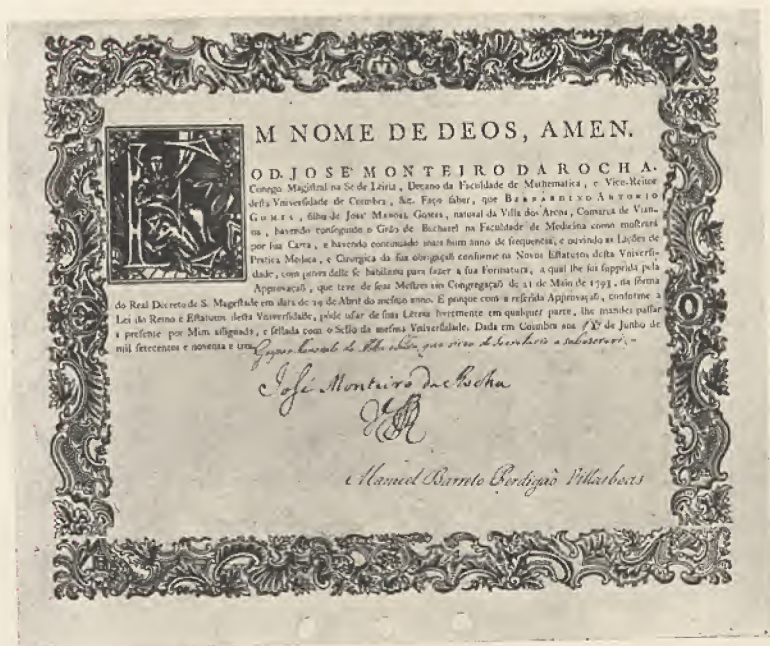 EM NOME DE DEOS, AMEN.
O D. JOSE' MONTEIRO DA ROCHA.
Conego Magistral na Se de Leiria, Decano da Faculdade de Mathematica, e Vice-Reitor
desta Vniversidade de Coimbra, &c. Faço saber, que BERNARDINO ANTONIO
GOMES, filho de José MANOEL GOMES, natural da Villa dos Arcos, Comarca de Vian-
na, havendo conseguido o Gráo de Bacharel na Faculdade de Medicina como mostrará
por sua Carta, e havendo continuado mais hum anno de frequencia, e ouvindo as Lições de
Pratica Medica, e Cirurgica da sua obrigaçaõ conforme os Novos Estatutos desta Vniversi-
dade, com prova delle se habilitou para fazer a sua Formatura, a qual lhe foi supprida pela
Approvaçaõ, que teve de seus Mestres em Congregaçaõ de 21 de Maio de 1793, na fórma
do Real Decreto de S. Magestade em data de 29 de Abril do mesmo anno. E porque com a referida Approvaçaõ, conforme a
Lei do Reino e Estatutos desta Vniversidade, póde usar de suas Letras livremente em qualquer parte, lhe mandei passar
a presente por Mim assignada, e sellada com o Sello da mesma Vniversidade. Dada em Coimbra aos de Junho de
mil setecentos e noventa e tres
José Monteiro da Rocha
Manuel Barreto Perdigaõ Villasboas